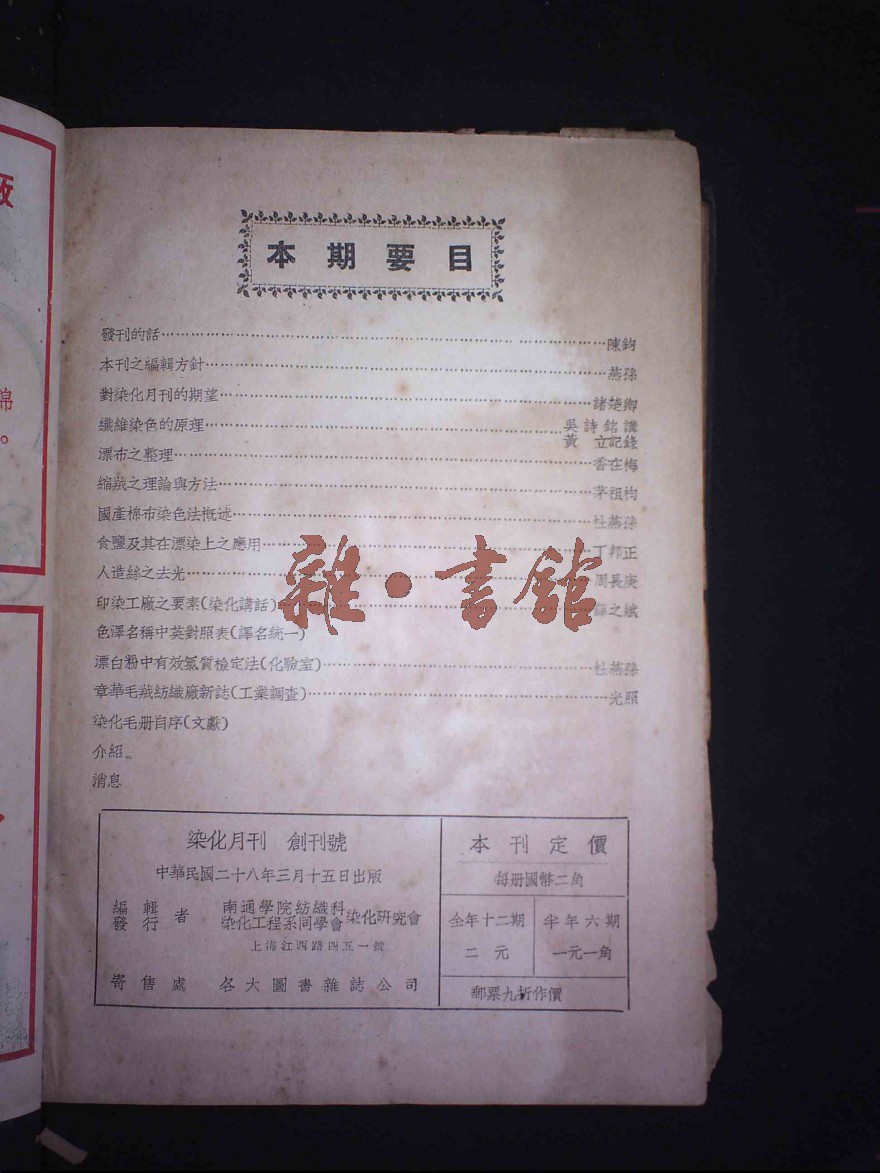 本期要目
發刊的話……陳鈞
本刊之編輯方針……燕孫
對染化月刊的期望……諸楚卿
纖維染色的原理……吳詩銘講
黃立記錄
漂布之整理……香在梅
縮羢之理論與方法……茅祖枸
國產棉布染色法概述……杜燕孫
食鹽及其在漂染上之應用……丁邦正
人造絲之去光……周長庚
印染工廠之要素(染化講話)……薛之斌
色澤名稱中英對照表(譯名統一)
漂白粉中有效氯質檢定法(化驗室)……杜燕孫
章華毛羢紡織廠新誌(工業調查)……光照
染化毛册自序(文獻)
介紹
消息
染化月刊 創刊號
中華民國二十八年三月十五日出版
編輯
發行
者
南通學院紡織科
染化工程系同學會
染化研究會
上海江西路四五一號
寄售處 各大圖書雜誌公司
本刊定價
每册國幣二角
全年十二期
二元
半年六期
一元一角
郵票九折作價
雜·書館